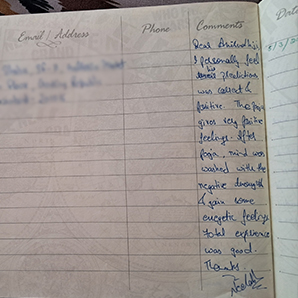 Email / Address
Phone
Comments
Date
Dear
I personally feel
his predictions
was correct &
positive. The pooja
gives very positive
feelings. After
Pooja, mind was
washed with the
negative strength
& gain some
energetic feelings
Total experience
was good.
Thanks